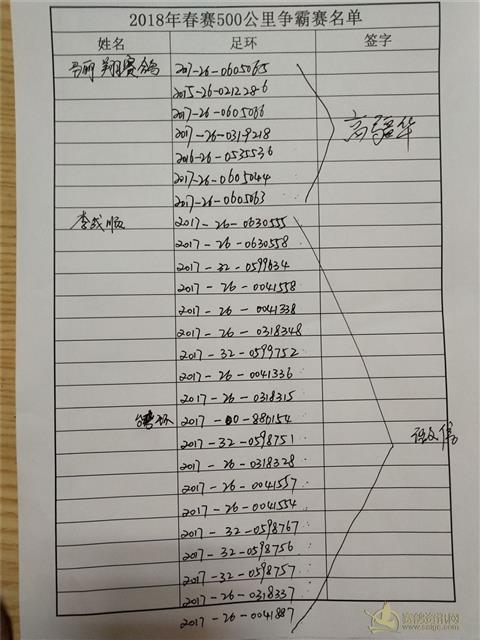 2018年春赛500公里争霸赛名单
姓名 足环 签字
翔赛鸽 2017-26-0605065
2015-26-0212286
2017-26-0605066
2017-26-0319218
2016-26-0535536
2017-26-0605044
2017-26-0605063
李成顺 2017-26-0630555
2017-26-0630558
2017-32-0599634
2017-26-0041558
2017-26-0041338
2017-26-0318348
2017-32-0599752
2017-26-0041336
2017-26-0318315
2017-00-880154
2017-32-0598751
2017-26-0318328
2017-26-0041557
2017-26-0041554
2017-32-0598767
2017-32-0598756
2017-32-0598757
2017-26-0318337
2017-26-0041887
赛鸽资讯网